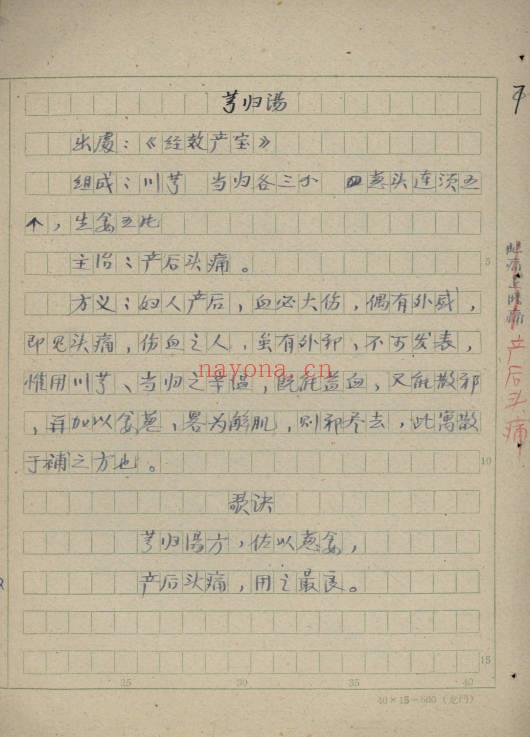 芎归湯
出处：《经效产宝》
组成：川芎 当归各三钱 葱头连须五
个，生姜五片
主治：产后头痛。
方义：妇人产后，血必大伤，偶有外感，
即见头痛，伤血之人，虽有外邪，不可发表，
惟用川芎、当归之辛温，既能益血，又能散邪
，再加以姜葱，畧为解肌，则邪齐去，此寓散
于補之方也。
歌诀
芎归湯方，佐以葱姜，
产后头痛，用之最良。
产后头痛
7
5
10
15
25 30 35 40
40×15=600（龙门）
nayona.cn